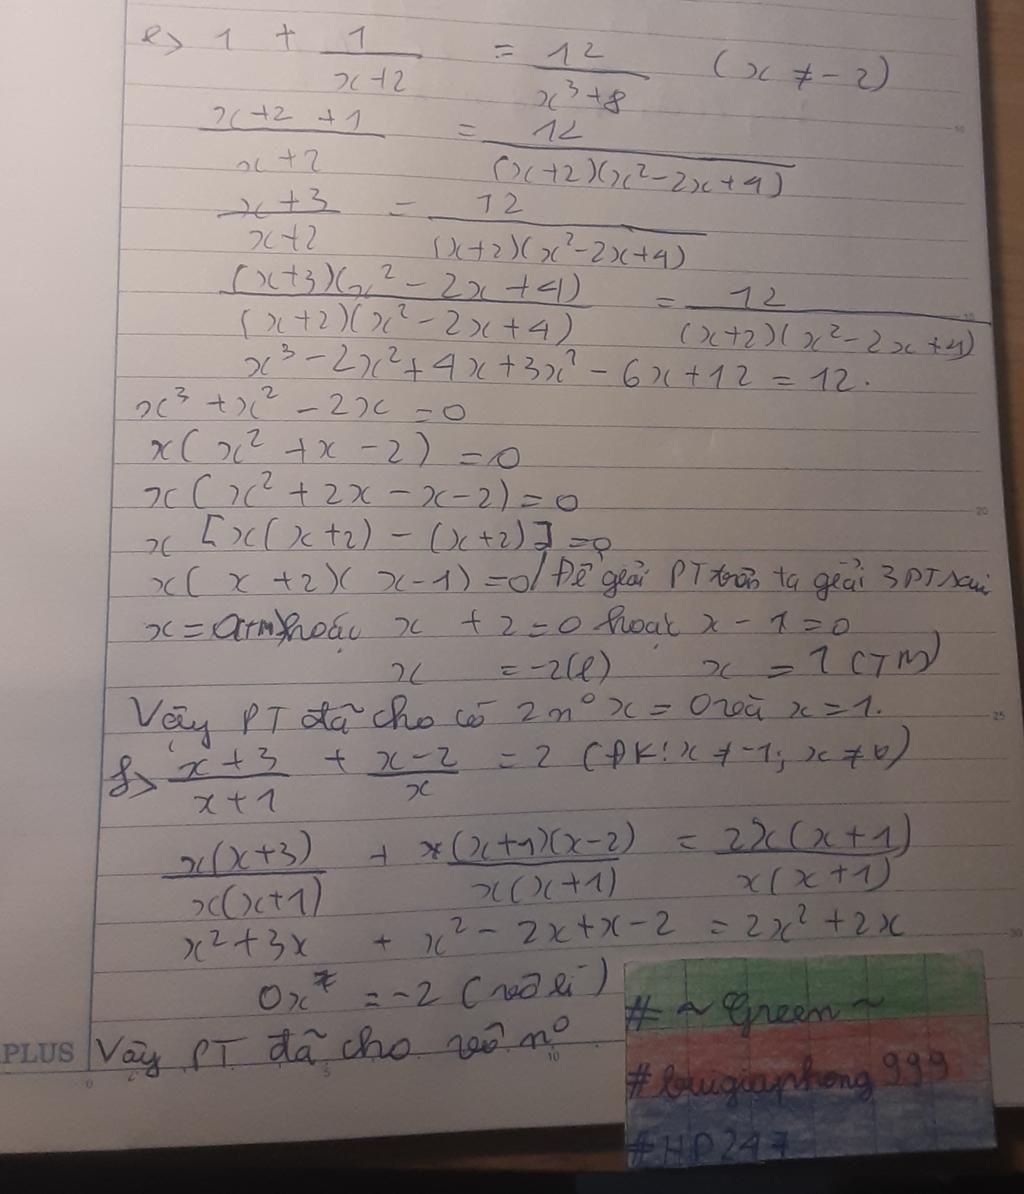 e> 1 + 1/(x+2) = 12/(x³+8) (x ≠ -2)
(x+2+1)/(x+2) = 12/((x+2)(x²-2x+4))
(x+3)/(x+2) = 12/((x+2)(x²-2x+4))
((x+3)(x²-2x+4))/((x+2)(x²-2x+4)) = 12/((x+2)(x²-2x+4))
x³ - 2x² + 4x + 3x² - 6x + 12 = 12.
x³ + x² - 2x = 0
x( x² + x - 2) = 0
x( x² + 2x - x - 2) = 0
x [x(x+2) - (x+2)] = 0
x( x +2)( x-1) = 0 / Để giải PT trên ta giải 3 PT sau
x = 0(TM) hoặc x + 2 = 0 hoặc x - 1 = 0
x = -2(l) x = 1 (TM)
Vậy PT đã cho có 2 n⁰ x = 0 và x = 1.
f> (x+3)/(x+1) + (x-2)/x = 2 (ĐK: x ≠ -1; x ≠ 0)
(x(x+3))/(x(x+1)) + ((x+1)(x-2))/(x(x+1)) = (2x(x+1))/(x(x+1))
x² + 3x + x² - 2x + x - 2 = 2x² + 2x
0x = -2 (vô lí)
PLUS Vậy PT đã cho vô n⁰
# ~ Green ~
#buigiaphong999
#HP247
10
15
20
25
30
0 5 10